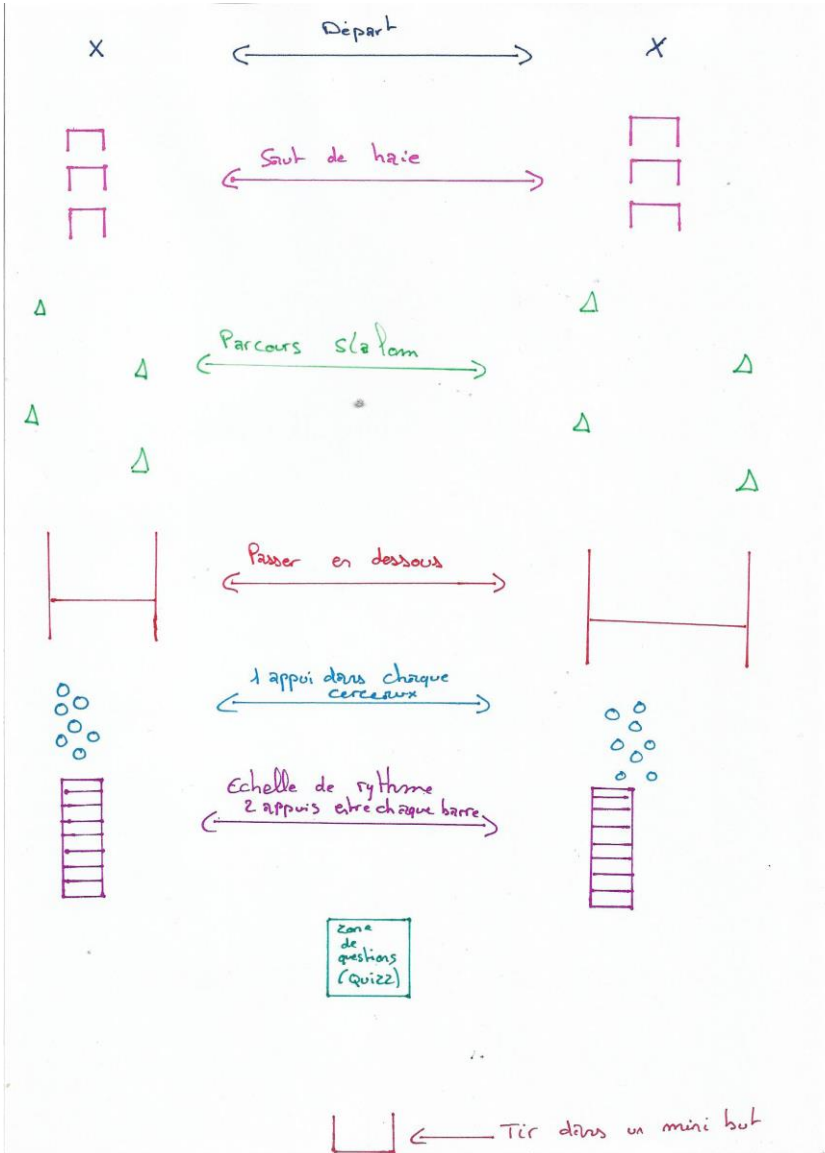 Départ
X
X
Saut de haie
Parcours slalom
Passer en dessous
1 appui dans chaque
cerceaux
Echelle de rythme
2 appuis entre chaque barre
Zone
de
questions
(Quizz)
Tir dans un mini but